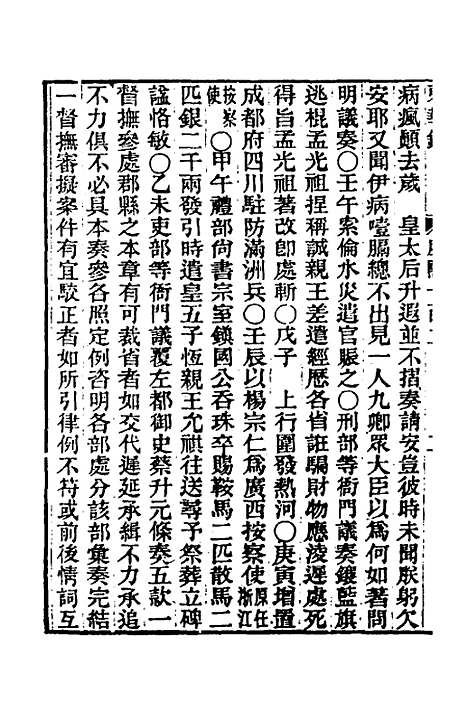 病瘋顚去歲　皇太后升遐並不摺奏請安豈彼時未聞朕躬欠
安耶又聞伊病噎膈總不出見一人九卿眾大臣以爲何如著問
明議奏○壬午索倫水災遣官賑之○刑部等衙門議奏鑲藍旗
逃棍孟光祖揑稱誠親王差遣經歷各省誆騙財物應淩遲處死
得旨孟光祖著改卽處斬○戊子　上行圍發熱河○庚寅增置
成都府四川駐防滿洲兵○壬辰以楊宗仁爲廣西按察使原任浙江
按察使○甲午禮部尚書宗室鎮國公吞珠卒賜鞍馬二匹散馬二
匹銀二千兩發引時遣皇五子恆親王允祺往送尋予祭葬立碑
諡恪敏○乙未吏部等衙門議覆左都御史蔡升元條奏五款一
督撫參處郡縣之本章有可裁省者如交代遲延承緝不力承追
不力俱不必具本奏參各照定例咨明各部處分該部彙奏完結
一督撫審擬案件有宜駮正者如所引律例不符或前後情詞互